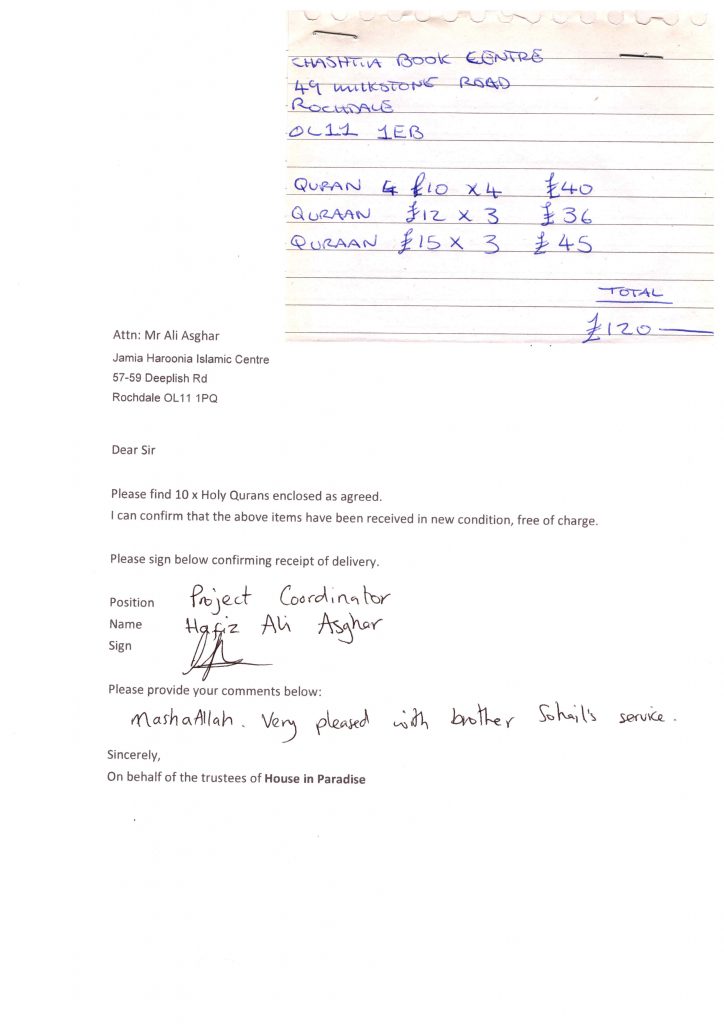 CHASHTIA BOOK CENTRE
49 MILKSTONE ROAD
ROCHDALE
OL11 1EB
QURAN £10 x 4 £40
QURAAN £12 x 3 £36
QURAAN £15 x 3 £45
TOTAL
£120
Attn: Mr Ali Asghar
Jamia Haroonia Islamic Centre
57-59 Deeplish Rd
Rochdale OL11 1PQ
Dear Sir
Please find 10 x Holy Qurans enclosed as agreed.
I can confirm that the above items have been received in new condition, free of charge.
Please sign below confirming receipt of delivery.
Position Project Coordinator
Name Hafiz Ali Asghar
Sign
Please provide your comments below:
MashaAllah. Very pleased with brother Sohail's service.
Sincerely,
On behalf of the trustees of House in Paradise